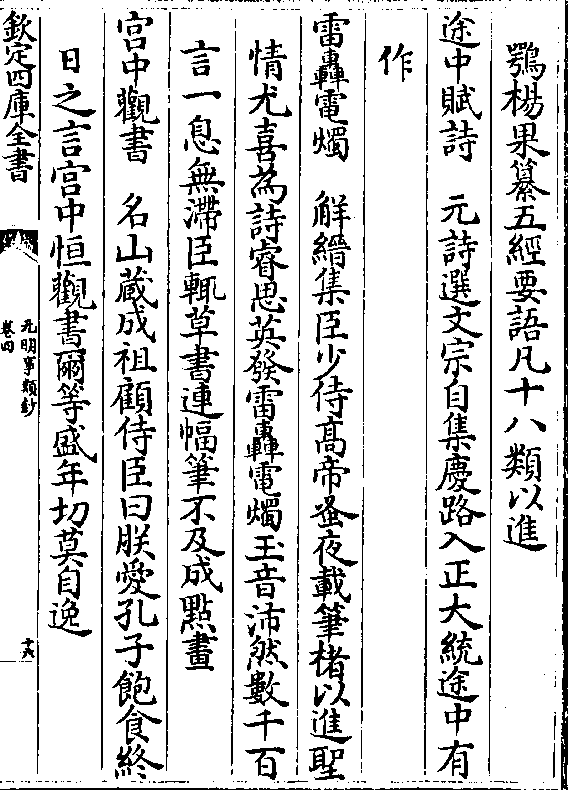 鶚楊果纂五經要語凡十八類以進
途中賦詩　元詩選文宗自集慶路入正大統途中有
作
雷轟電燭　解縉集臣少侍髙帝蚤夜載筆楮以進聖
情尤喜為詩睿思英發雷轟電燭玉音沛然數千百
言一息無滯臣輒草書連幅筆不及成㸃畫
宫中觀書　名山藏成祖顧侍臣曰朕愛孔子飽食終
日之言宫中恒觀書爾等盛年切莫自逸
欽定四庫全書
元明事類鈔
卷四
十六